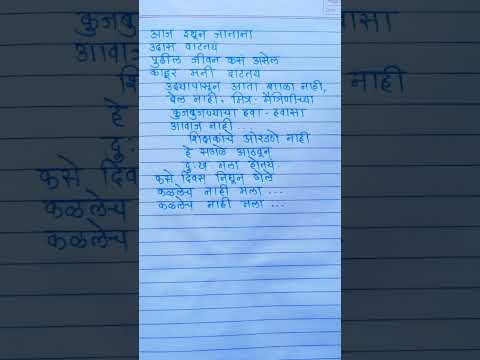 आज इथून जाताना
उदास वाटतय
पुढील जीवन कसं असेल
काहूर मनी दाटतय
उद्यापासून आता शाळा नाही,
बेल नाही, मित्र-मैत्रिणींच्या
कुजबुजण्याचा हवा-हवासा
आवाज नाही ...
शिक्षकांचे ओरडणे नाही
हे सगळं आठवून
दु:ख मला होतये.
कसे दिवस निघून गेले
कळलेच नाही मला ...
कळलेच नाही मला ...